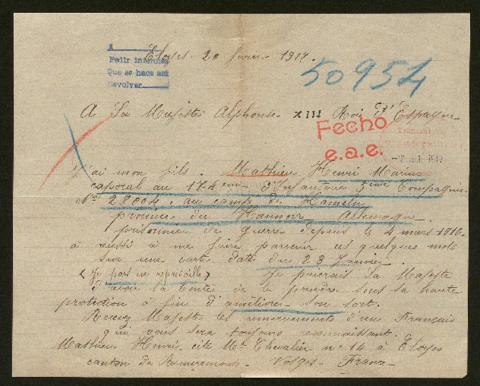 A
Pedir informes
Que se haga así
Devolver
Eloyes 20 février 1917.
50954
A Sa Majesté Alphonse XIII Roi d'Espagne
Fecho
e.a.e.
J'ai mon fils Mathieu Henri Marius
caporal au 174eme d'Infanterie 3eme Compagnie
No 28004, au camp de Hameln
province du Hannovre Allemagne
prisonnier de guerre depuis le 4 mars 1916
a réussi à me faire parvenir ces quelques mots
sur une carte datée du 23 Janvier
Je prierais Sa Majesté
d'avoir la bonté de le prendre sous sa haute
protection à fin d'améliorer son sort.
Recevez Majesté les remerciements d'un Français
qui vous sera toujours reconnaissant.
Mathieu Henri, cité Mt Chevalier no 14 à Eloyes
canton de Remiremont Vosges France